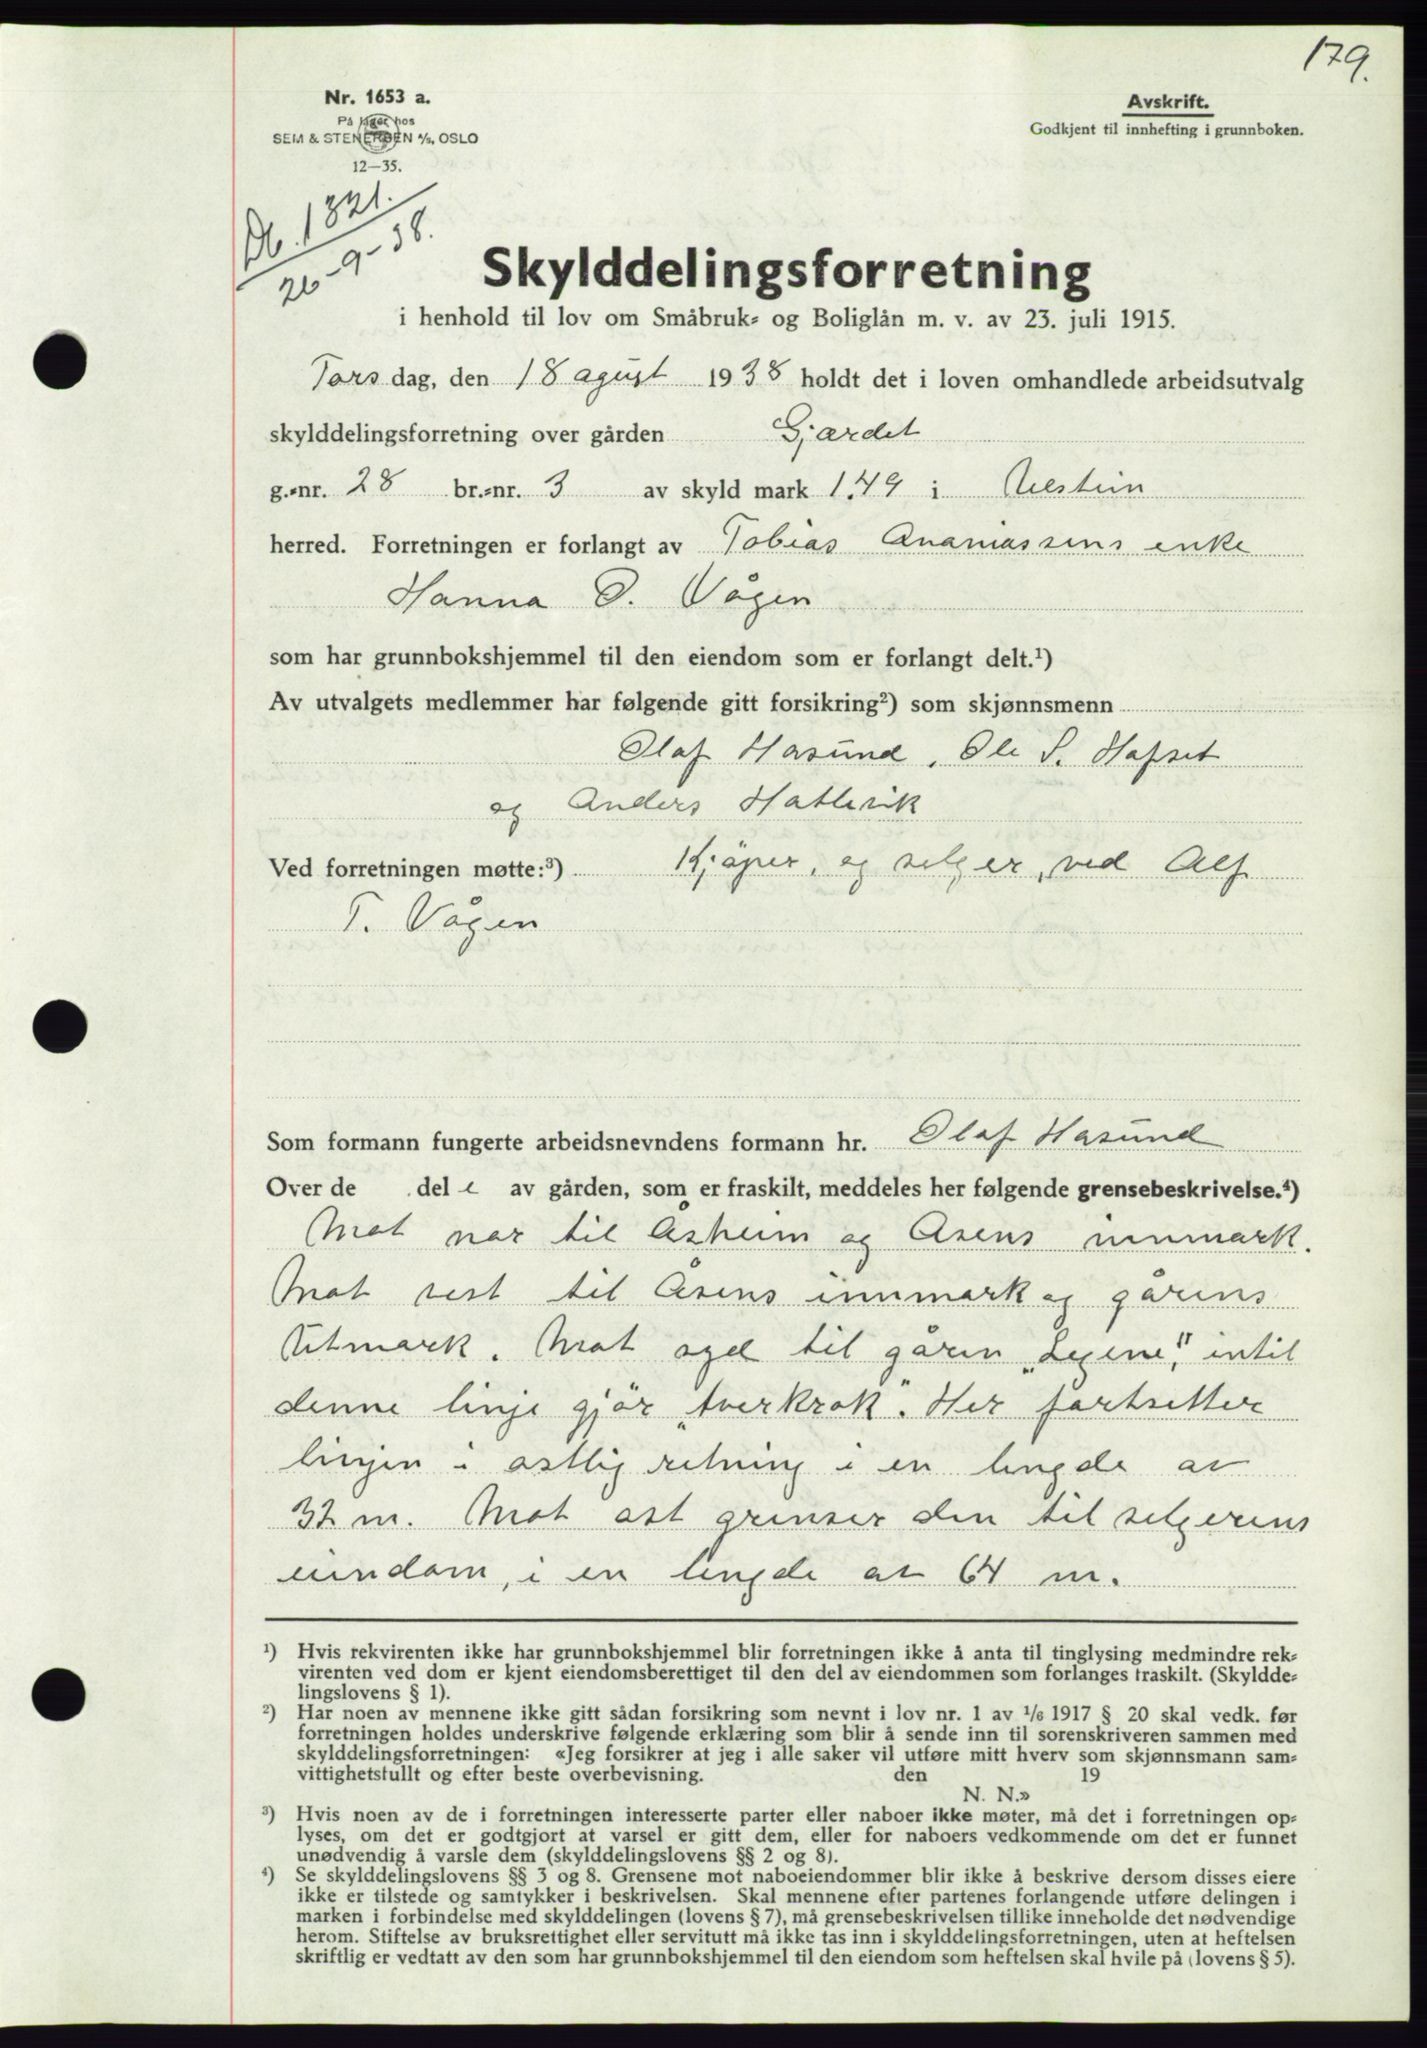 179.
Nr. 1653 a.
På lager hos
SEM & STENERSEN A/S, OSLO
12—35.
Avskrift.
Godkjent til innhefting i grunnboken.
Db. 1821.
26-9-38.
Skylddelingsforretning
i henhold til lov om Småbruk- og Boliglån m. v. av 23. juli 1915.
Torsdag, den 18 agust 1938 holdt det i loven omhandlede arbeidsutvalg
skylddelingsforretning over gården Gjærdet
g.-nr. 28 br.-nr. 3 av skyld mark 1.49 i Ulstein
herred. Forretningen er forlangt av Tobias Ananiassens enke
Hanna O. Vågen
som har grunnbokshjemmel til den eiendom som er forlangt delt.¹)
Av utvalgets medlemmer har følgende gitt forsikring²) som skjønnsmenn
Olaf Hasund, Ole S. Hafset
og Anders Hatlevik
Ved forretningen møtte:³) Kjöper, og selger, ved Alf
T. Vågen
Som formann fungerte arbeidsnevndens formann hr. Olaf Hasund
Over de del e av gården, som er fraskilt, meddeles her følgende grensebeskrivelse.⁴)
Mot nor til Åsheim og Åsens innmark.
Mot vest til Åsens innmark og gårens
Utmark. Mot syd til gåren „Legene", intil
denne linje gjör „tverkrok". Her fortsetter
linjen i östlig retning i en lengde av
32 m. Mot öst grenser den til selgerens
eiendom, i en lengde av 64 m.
¹) Hvis rekvirenten ikke har grunnbokshjemmel blir forretningen ikke å anta til tinglysing medmindre rek-
virenten ved dom er kjent eiendomsberettiget til den del av eiendommen som forlanges fraskilt. (Skyldde-
lingslovens § 1).
²) Har noen av mennene ikke gitt sådan forsikring som nevnt i lov nr. 1 av 1/6 1917 § 20 skal vedk. før
forretningen holdes underskrive følgende erklæring som blir å sende inn til sorenskriveren sammen med
skylddelingsforretningen: «Jeg forsikrer at jeg i alle saker vil utføre mitt hverv som skjønnsmann sam-
vittighetsfullt og efter beste overbevisning. den 19
N. N.»
³) Hvis noen av de i forretningen interesserte parter eller naboer ikke møter, må det i forretningen op-
lyses, om det er godtgjort at varsel er gitt dem, eller for naboers vedkommende om det er funnet
unødvendig å varsle dem (skylddelingslovens §§ 2 og 8).
⁴) Se skylddelingslovens §§ 3 og 8. Grensene mot naboeiendommer blir ikke å beskrive dersom disses eiere
ikke er tilstede og samtykker i beskrivelsen. Skal mennene efter partenes forlangende utføre delingen i
marken i forbindelse med skylddelingen (lovens § 7), må grensebeskrivelsen tillike inneholde det nødvendige
herom. Stiftelse av bruksrettighet eller servitutt må ikke tas inn i skylddelingsforretningen, uten at heftelsen
skriftlig er vedtatt av den som har grunnbokshjemmel til den eiendom som heftelsen skal hvile på (lovens § 5).